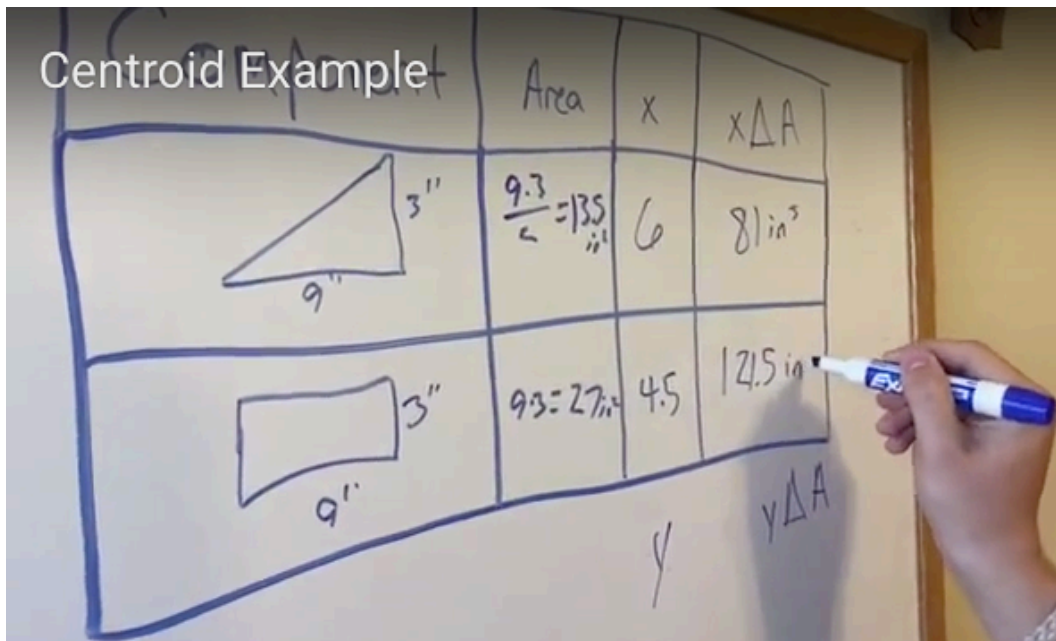 Centroid Example
Component Area x xΔA
3"
9.3 = 13.5 in²
6 81 in³
9"
3"
9.3 = 27 in² 4.5 121.5 in
9"
y yΔA